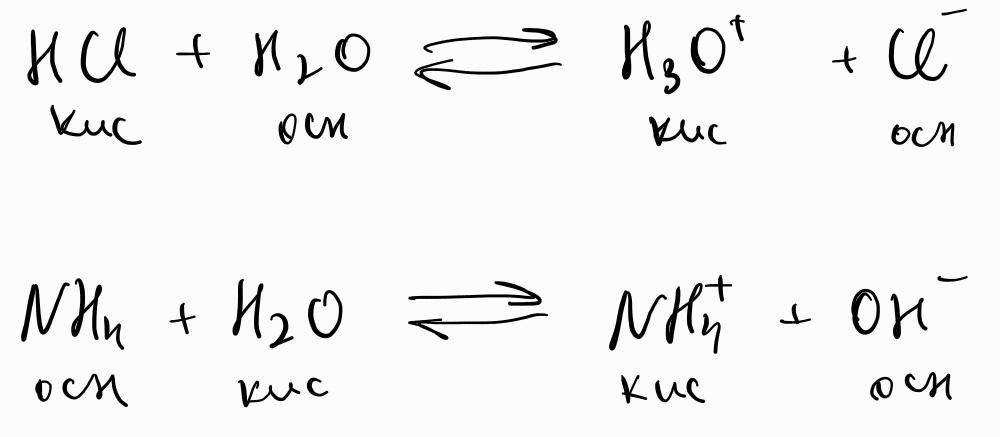 HCl + H₂O ⇌ H₃O⁺ + Cl⁻
кис осн кис осн
NH₄ + H₂O ⇌ NH₄⁺ + OH⁻
осн кис кис осн